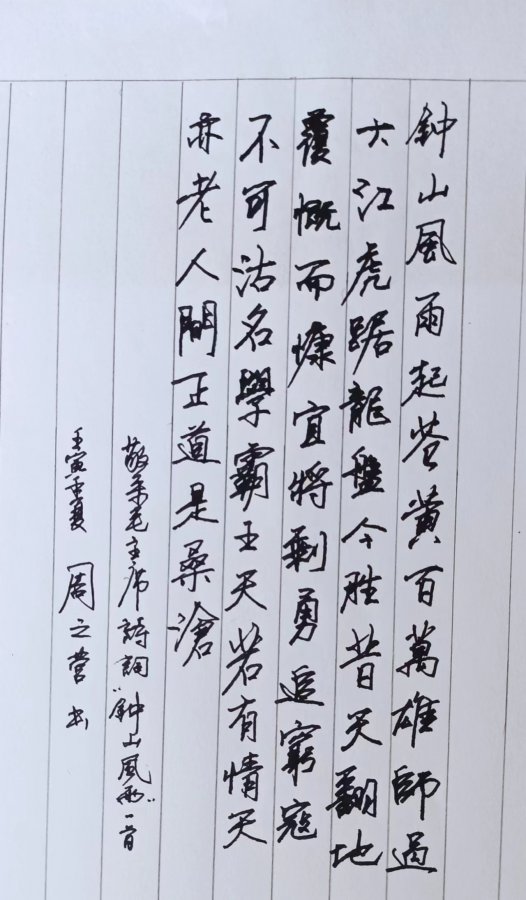 鈡山風雨起苍黄百萬雄師過
大江虎踞龍盤今胜昔天翻地
覆慨而慷宜將剩勇追窮寇
不可沽名學霸王天若有情天
亦老人間正道是桑滄
敬录毛主席詩詞"鈡山風雨"一首
壬寅季夏 周之营书